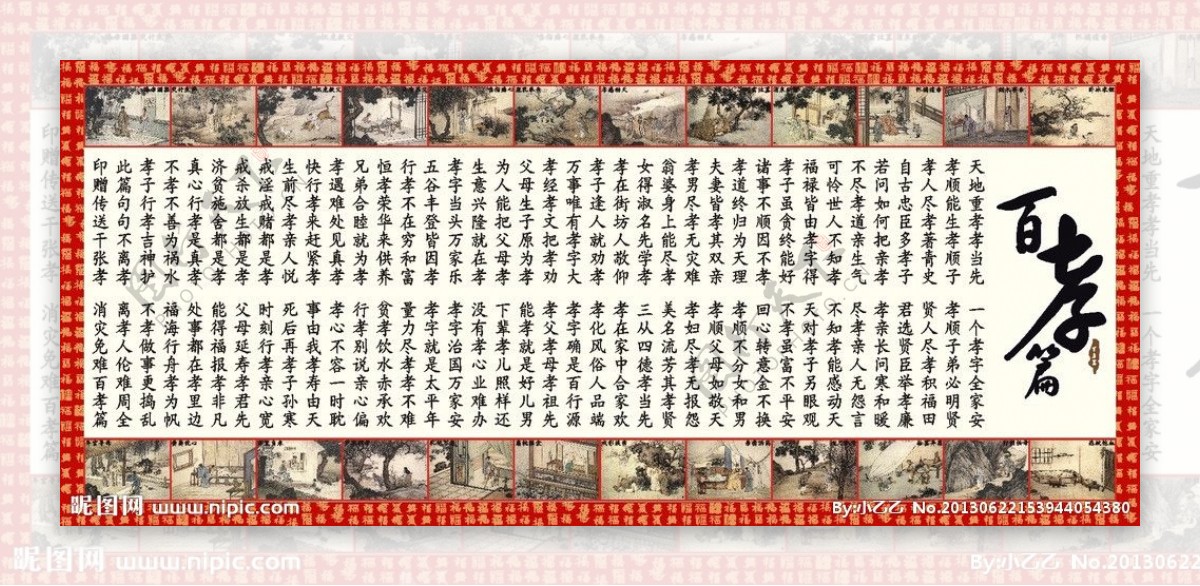 百孝篇
天地重孝孝当先 一个孝字全家安
孝顺能生孝顺子 孝顺子弟必明贤
孝人尽孝著青史 贤人尽孝积福田
自古忠臣多孝子 君选贤臣举孝廉
若问如何把亲孝 孝亲长问寒和暖
不尽孝道亲生气 尽孝亲人无怨言
可怜世人不知孝 不知孝能感动天
福禄皆由孝字得 天对孝子另眼观
孝子虽贪终能好 不孝虽富不平安
诸事不顺因不孝 回心转意金不换
孝道终归为天理 孝顺不分女和男
夫妻皆孝其双亲 孝顺父母如敬天
孝男尽孝无灾难 孝妇尽孝无报怨
翁婆身上能尽孝 美名流芳其孝贤
女得淑名先学孝 三从四德孝当先
孝在街坊人敬仰 孝在家中合家欢
孝子逢人就劝孝 孝化风俗人品端
万事唯有孝字大 孝字确是百行源
孝经孝文把孝劝 孝父孝母孝祖先
父母生子原为孝 能孝就是好儿男
为人能把父母孝 下辈孝儿照样还
生意兴隆就在孝 没有孝心业难办
孝字当头万家乐 孝字治国万家安
五谷丰登皆因孝 孝字就是太平年
行孝不在穷和富 量力尽孝孝不难
恒孝荣华来供养 贫孝饮水赤承欢
兄弟合睦就为孝 行孝别说亲心偏
孝遇难处见真孝 孝心不容一时耽
快行孝来赶紧孝 事由我孝寿由天
生前尽孝亲人悦 死后再孝子孙寒
戒淫戒赌都是孝 时刻行孝亲心宽
戒杀放生都是孝 父母延寿孝君先
济贫施舍都是孝 能得福报孝非凡
真心行孝是真孝 处事都在孝里边
不孝不善为祸水 福海行舟孝为帆
孝子行孝吉神护 不孝做事更捣乱
此篇句句不离孝 离孝人伦难周全
印赠传送千张孝 消灾免难百孝篇
昵图网 www.nipic.com
By:小乙乙 No.20130622153944054380